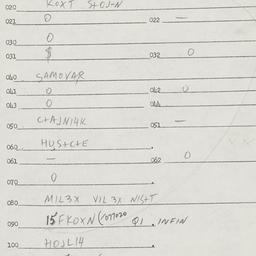 020 KOXT S+OJ-N
021 0 022 —
030 0
031 $ 032 0
040 SAMOVAR
041 0 042 0
043 0 044
050 C+AJNI4K 051 —
060 HUS+C+E
061 — 062 0
070 0
080 MIL3X VIL3X NIS+T
090 15 FKOXN QI . INFIN
100 HOJL14